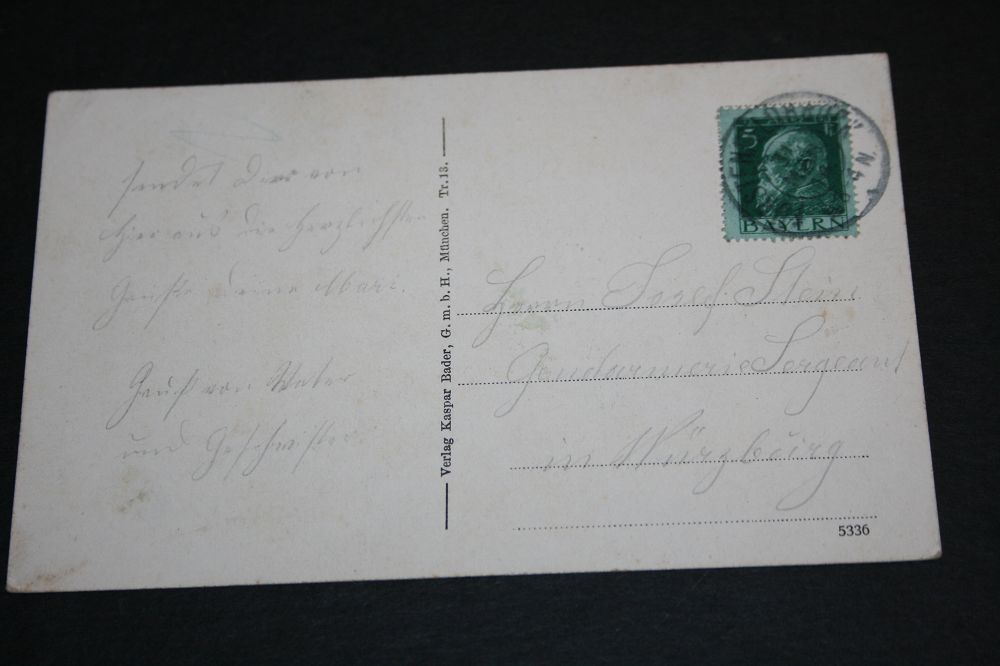 sendet Dir von
hier aus die herzlichsten
Grüße deine Mari.
Gruß von Vater
und Geschwister
Verlag Kaspar Bader, G. m. b. H., München. Tr. 13.
5
BAYERN
Herrn Josef Stein
Gendarmerie Sergeant
in Würzburg
5336